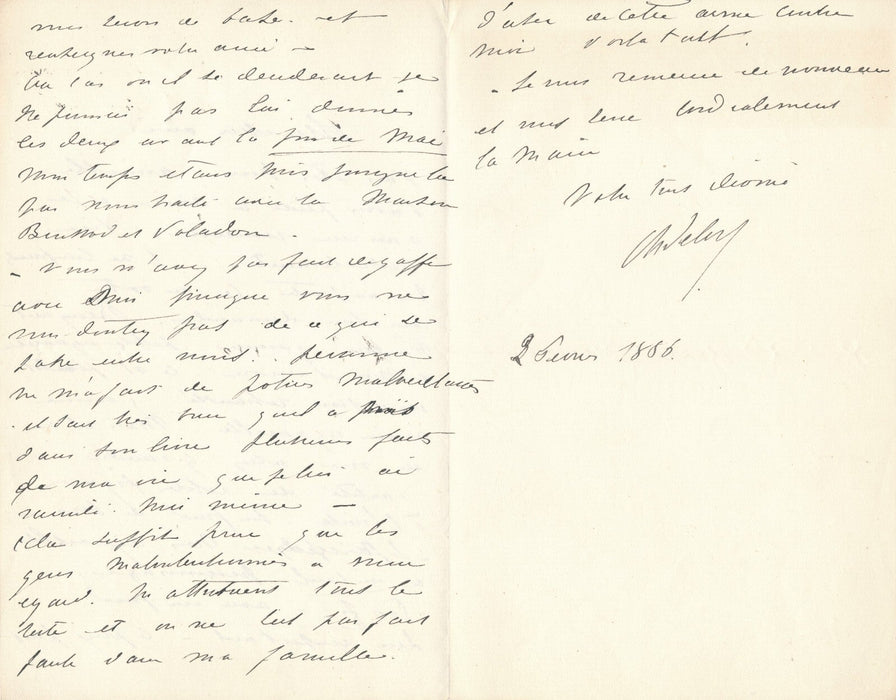 nous serons de
et
renseignez votre ami —
Au cas où il se déciderait je
ne pourrais pas lui donner
les deux avant la fin de Mai
mon temps étant pris jusque là
par mon traité avec la Maison
Boussod et Valadon.
— Vous n'avez pas fait de gaffe
avec puisque vous ne
vous doutez pas de ce qui se
entre nous.
me m'a fait de malveillantes
. il sait très bien qu'il a
dans son livre plusieurs faits
de ma vie que je lui ai
raconté moi même —
cela suffit pour que les
gens malintentionnés à mon
égard m'attribuent tout le
reste et on ne s'est pas fait
faute dans ma famille.
d'user de cette arme contre
moi voilà tout.
- Je vous remercie de nouveau
et vous serre cordialement
la main
Votre tout dévoué
2 Février 1886.